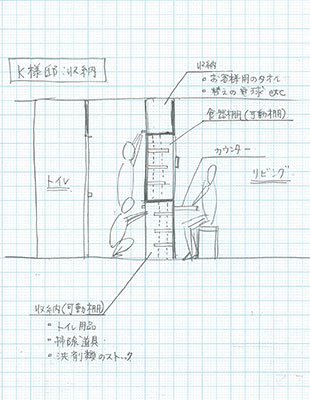 K様邸:収納
収納
・お客様用のタオル
・替えの電球 etc
食器棚(可動棚)
カウンター
トイレ
リビング
収納(可動棚)
・トイレ用品
・掃除道具
・洗剤類のストック